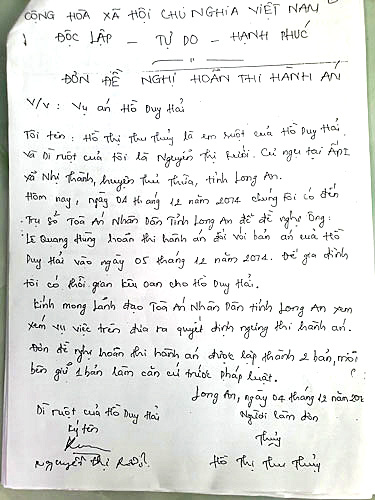 CỘNG HÒA XÃ HỘI CHỦ NGHĨA VIỆT NAM
ĐỘC LẬP - TỰ DO - HẠNH PHÚC
ĐƠN ĐỀ NGHỊ HOÃN THI HÀNH ÁN
V/v: Vụ án Hồ Duy Hải
Tôi tên: Hồ Thị Thu Thủy là em ruột của Hồ Duy Hải
Và Dì ruột của tôi là Nguyễn Thị Rưởi. Cư ngụ tại ẤP1
xã Nhị Thành, huyện Thủ Thừa, tỉnh Long An.
Hôm nay, ngày 04 tháng 12 năm 2014 chúng tôi có đến
Trụ Sở Toà Án Nhân Dân Tỉnh Long An để đề nghị Ông:
Lê Quang Hùng hoãn thi hành án đối với bản án của Hồ
Duy Hải vào ngày 05 tháng 12 năm 2014. Để gia đình
tôi có thời gian kêu oan cho Hồ Duy Hải.
Kính mong Lãnh đạo Toà Án Nhân Dân tỉnh Long An xem
xem vụ việc trên đưa ra quyết định ngừng thi hành án.
Đơn đề nghị hoãn thi hành án được lập thành 2 bản, mỗi
bên giữ 1 bản làm căn cứ trước pháp luật.
Long An, ngày 04 tháng 12 năm
Dì ruột của Hồ Duy Hải
Người làm đơn
Ký tên
Thủy
Nguyễn Thị
Hồ Thị Thu Thủy